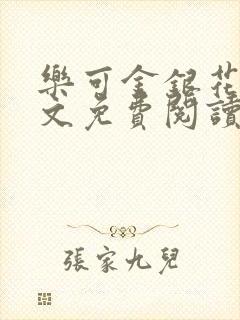 樂可金銀花
文免費閱讀
張家九兒